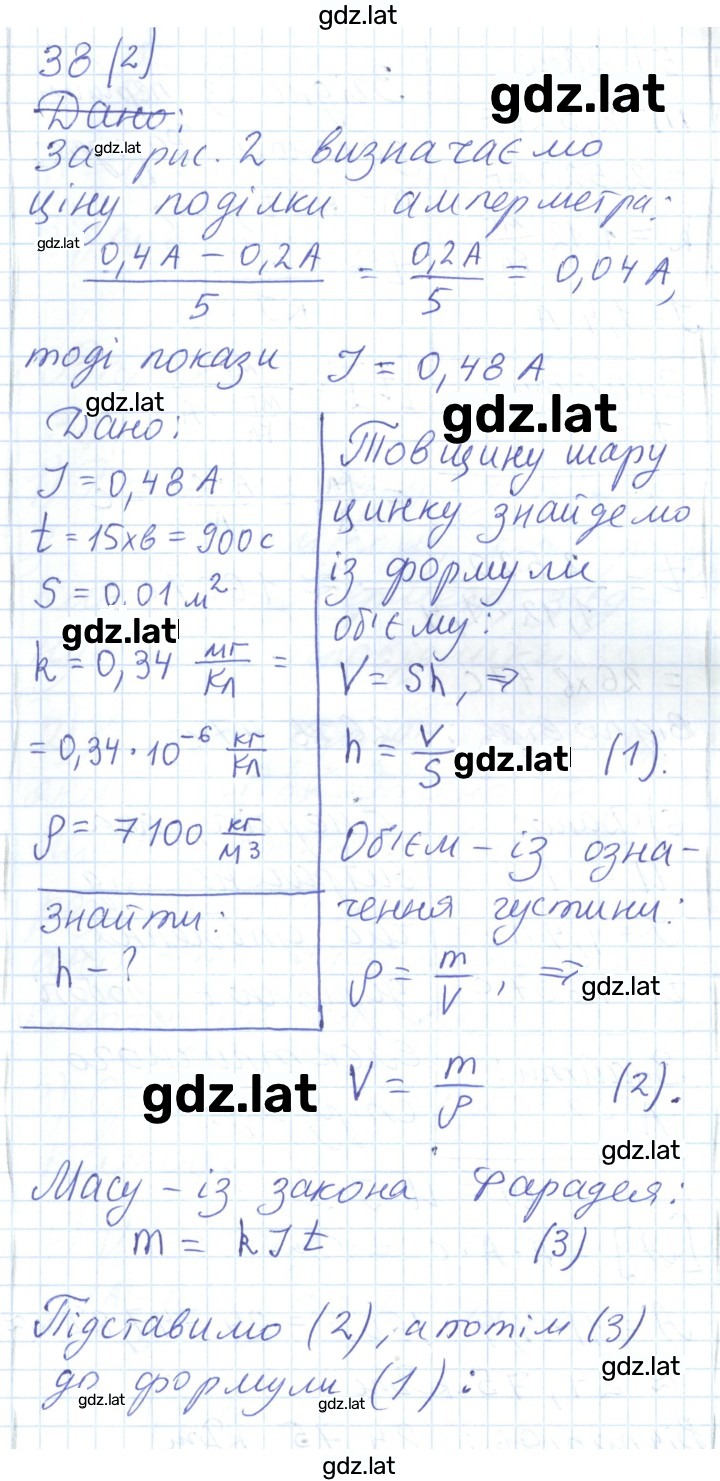 gdz.lat
38 (2)
gdz.lat
Дано:
За рис. 2 визначаємо
gdz.lat
ціну поділки амперметра:
gdz.lat
0,4 А - 0,2 А / 5 = 0,2 А / 5 = 0,04 А,
тоді покази I = 0,48 А
gdz.lat
gdz.lat
Дано:
I = 0,48 А
t = 15 хв = 900 с
S = 0,01 м²
gdz.lat
k = 0,34 мг/Кл =
= 0,34 · 10⁻⁶ кг/Кл
ρ = 7100 кг/м3
Знайти:
h - ?
Товщину шару
цинку знайдемо
із формули
об'єму:
V = Sh, ⇒
h = V/S (1).
gdz.lat
Об'єм - із озна-
чення густини:
ρ = m/V, ⇒
gdz.lat
V = m/ρ (2).
gdz.lat
gdz.lat
Масу - із закона Фарадея:
m = kIt (3)
Підставимо (2), а потім (3)
gdz.lat
до формули (1):
gdz.lat
gdz.lat
gdz.lat